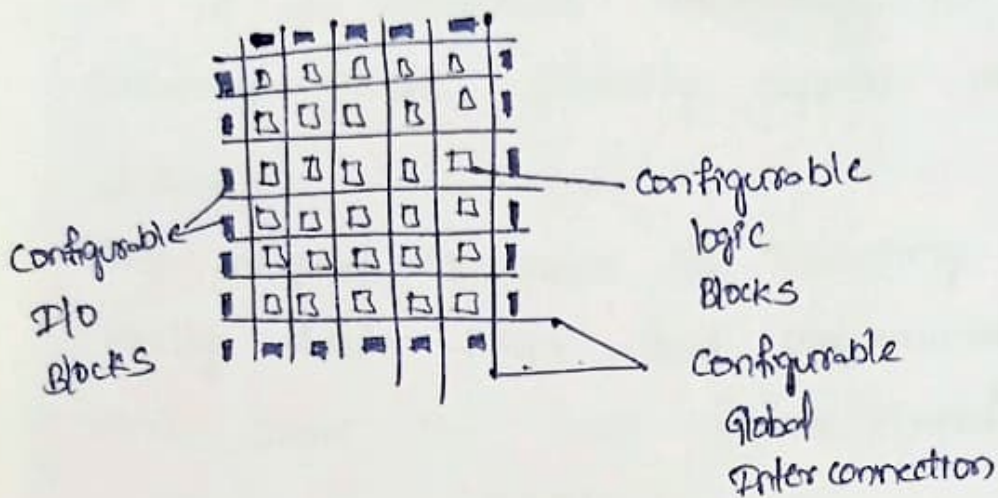 Configurable
I/O
Blocks
Configurable
logic
Blocks
Configurable
Global
Inter connection